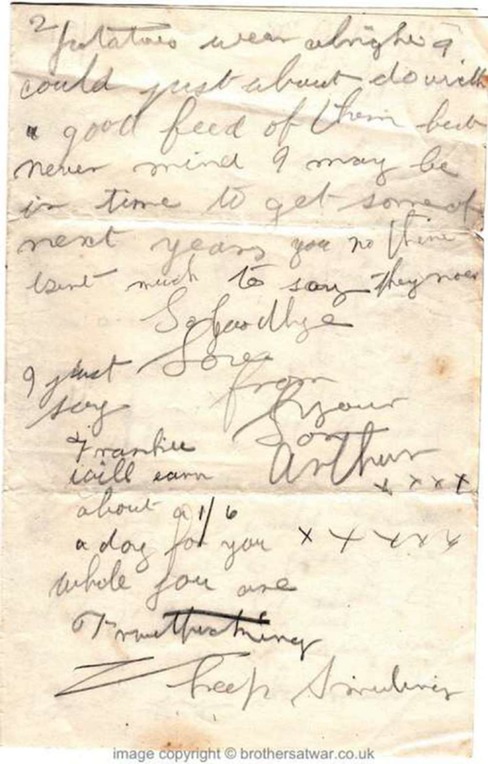 2
potatoes wear alright I
could just about do with
a good feed of them but
never mind I may be
in time to get some of
next years you no there
isent much to say they now
So goodbye
Love
from
your
Son
Arthur
x x x x
I just
say
Frankie
will earn
about a 1/6
a day for you x x x x x
whole you are
keep Smileing
image copyright © brothersatwar.co.uk